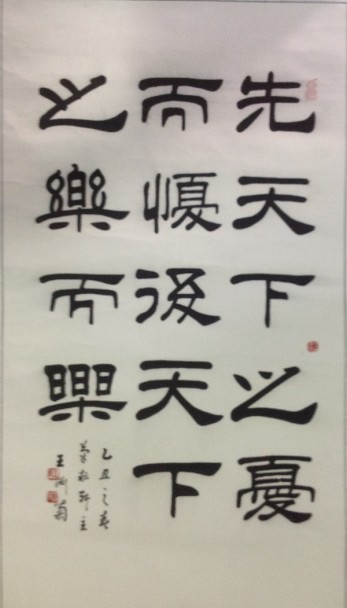 先天下之憂
而懮後天下
之樂而樂
乙丑之春
軒主
王菊